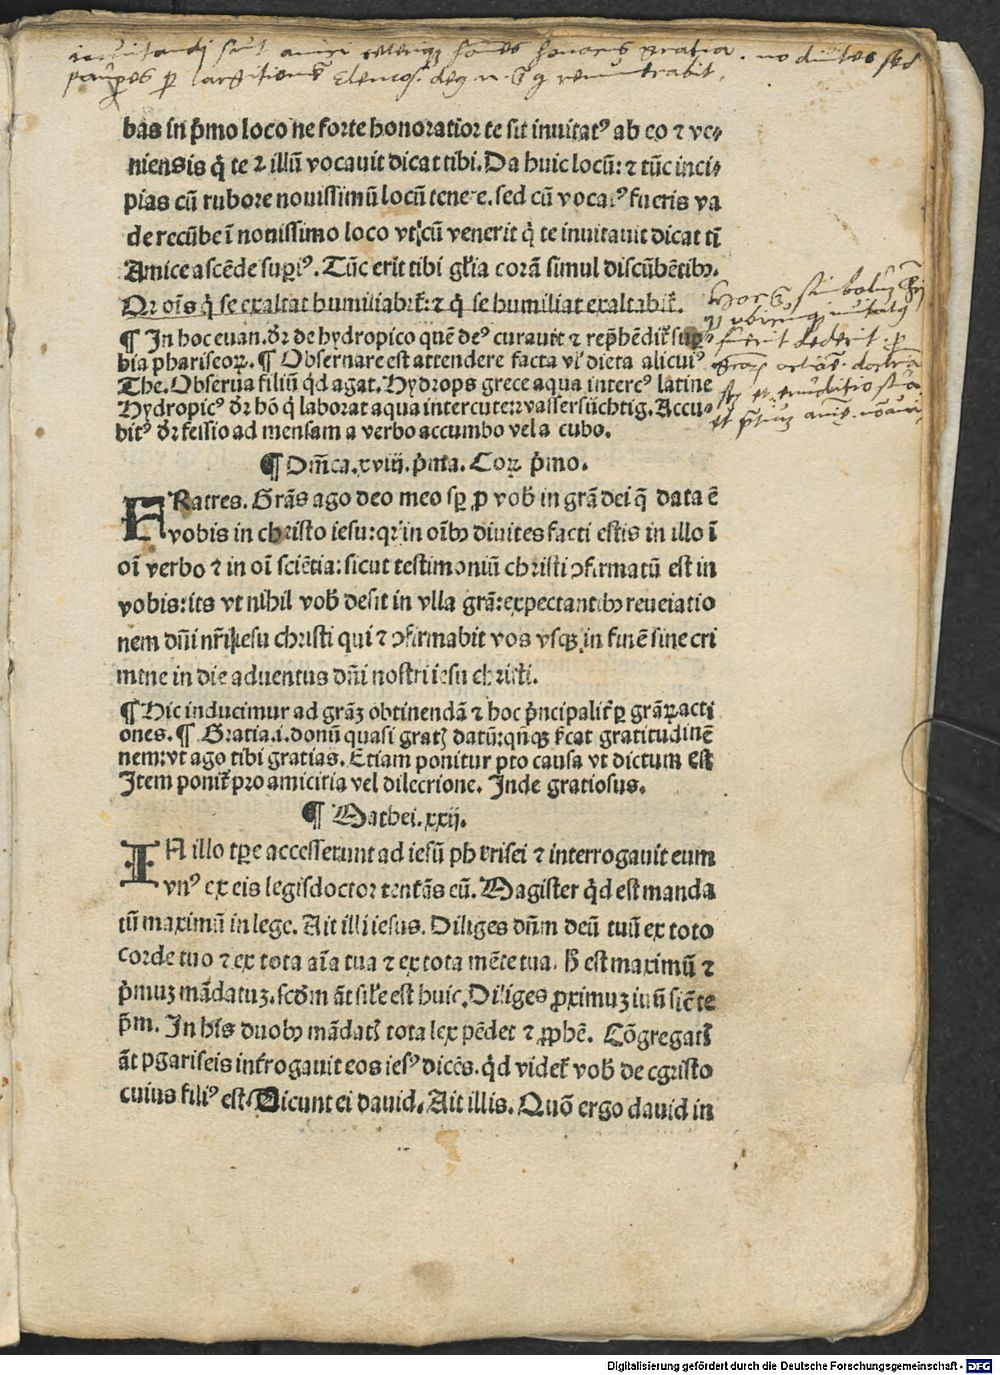 inuitandi sunt amici
pauperes
bas in p̄mo loco ne forte honoratior te sit inuitatꝰ ab eo ⁊ ve⸗
niensis q̇ te ⁊ illū vocauit dicat tibi. Da huic locū: ⁊ tūc inci⸗
pias cū rubore nouissimū locū tenere. sed cū vocatꝰ fueris va
de recūbe ī nouissimo loco vt cū venerit q̇ te inuitauit dicat ti
Amice ascēde supiꝰ. Tūc erit tibi gl'ia corā simul discūbētibꝫ.
Qr oīs q̇ se exaltat humiliabit̄: ⁊ q̇ se humiliat exaltabit̄.
¶ In hoc euan. dr̄ de hydropico quē deꝰ curauit ⁊ rep̄hēdit sup⸗
bia phariseoꝝ. ¶ Obseruare est attendere facta vl' dicta alicuiꝰ
The. Obserua filiū q̇d agat. Hydrops grece aqua intercꝰ latine
Hydropicꝰ dr̄ hō q̇ laborat aqua intercute: vassersüchtig. Accu⸗
bitꝰ dr̄ sessio ad mensam a verbo accumbo vel a cubo.
¶ Dn̄ica. xviij. p̄ma. Coꝝ. p̄mo.
FRatres. Grās ago deo meo sp̄ ꝓ vob̄ in grā dei q̄ data ē
vobis in christo iesu: qr in oībꝫ diuites facti estis in illo ī
oī verbo ⁊ in oī sciētia: sicut testimoniū christi ↄfirmatū est in
vobis: ita vt nihil vob̄ desit in vlla grā: expectantibꝫ reuelatio
nem dn̄i nr̄i iesu christi qui ⁊ ↄfirmabit vos vsqꝫ in finē sine cri
mine in die aduentus dn̄i nostri iesu christi.
¶ Hic inducimur ad grāꝫ obtinendā ⁊ hoc p̄ncipalit̄ ꝑ grāꝝ acti
ones. ¶ Gratia. i. donū quasi gratꝭ datū: qn̄qꝫ sc̄at gratitudinē
nem: vt ago tibi gratias. Etiam ponitur pro causa vt dictum est
Item ponit̄ pro amicitia vel dilectione. Inde gratiosus.
¶ Mathei. xxij.
IN illo tꝑe accesserunt ad iesū pharisei ⁊ interrogauit eum
vnꝰ ex eis legisdoctor tentās eū. Magister q̇d est manda
tū maximū in lege. Ait illi iesus. Diliges dn̄m deū tuū ex toto
corde tuo ⁊ ex tota aīa tua ⁊ ex tota mēte tua. h̄ est maximū ⁊
p̄muꝫ mādatuꝫ. scd̄m āt sil'e est huic. Diliges ꝓximuꝫ tuū sic te
ip̄m. In his duobꝫ mādatꝭ tota lex pēdet ⁊ ꝓphē. Cōgregatꝭ
āt pgariseis int̄rogauit eos iesꝰ dicēs. q̇d videt̄ vob̄ de cgristo
cuius filiꝰ est. Dicunt ei dauid. Ait illis. Quō ergo dauid in
Digitalisierung gefördert durch die Deutsche Forschungsgemeinschaft - DFG